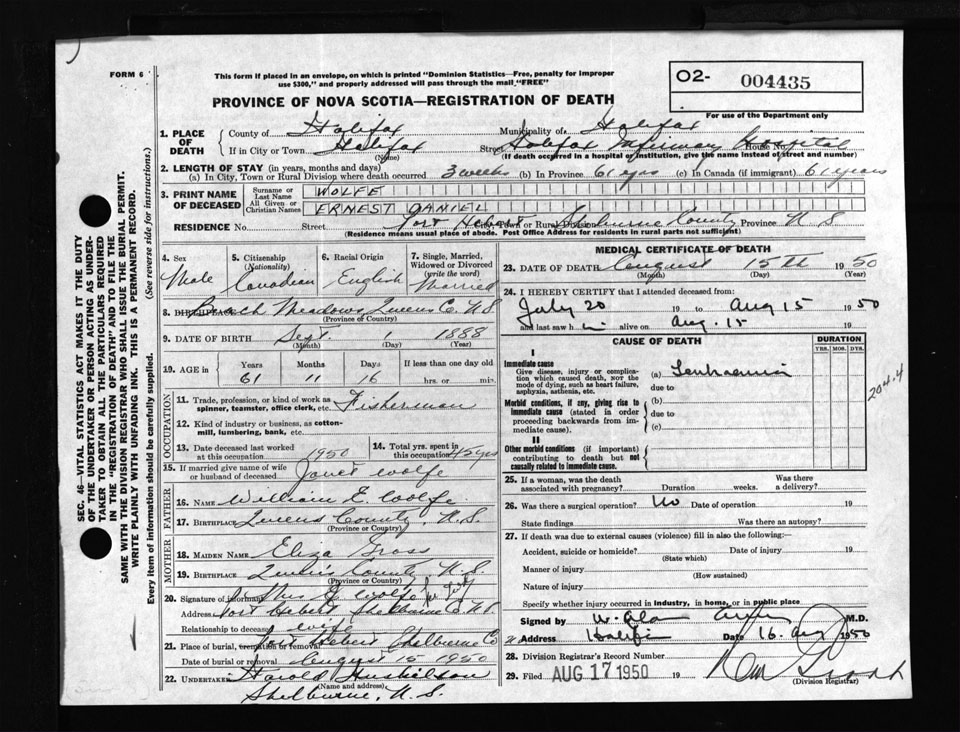 FORM 6
This form if placed in an envelope, on which is printed "Dominion Statistics—Free, penalty for improper
use $300," and properly addressed will pass through the mail "FREE"
O2- 004435
For use of the Department only
PROVINCE OF NOVA SCOTIA—REGISTRATION OF DEATH
1. PLACE OF DEATH { County of Halifax Municipality of Halifax
If in City or Town Halifax (Name) Street Halifax Infirmary Hospital House No.
(If death occurred in a hospital or institution, give the name instead of street and number)
2. LENGTH OF STAY (in years, months and days)
(a) In City, Town or Rural Division where death occurred 3 weeks (b) In Province 61 yrs (c) In Canada (if immigrant) 61 years
3. PRINT NAME OF DECEASED { Surname or Last Name WOLFE
All Given or Christian Names ERNEST DANIEL
RESIDENCE No. Street Port Hebert City, Town or Rural Division Shelburne County Province N.S
(Residence means usual place of abode. Post Office Address for residents in rural parts not sufficient)
4. Sex Male
5. Citizenship (Nationality) Canadian
6. Racial Origin English
7. Single, Married, Widowed or Divorced (write the word) Married
8. BIRTHPLACE Beach Meadows Queens C. N.S
(Province or Country)
9. DATE OF BIRTH Sept. 1888
(Month) (Day) (Year)
10. AGE in { Years 61 Months 11 Days 16 If less than one day old hrs. or min.
OCCUPATION
11. Trade, profession, or kind of work as spinner, teamster, office clerk, etc. Fisherman
12. Kind of industry or business, as cotton-mill, lumbering, bank, etc.
13. Date deceased last worked at this occupation 1950
14. Total yrs. spent in this occupation 45 yrs
15. If married give name of wife or husband of deceased Janet Wolfe
FATHER
16. NAME William E. Wolfe
17. BIRTHPLACE Queens County, N.S.
(Province or Country)
MOTHER
18. MAIDEN NAME Eliza Gross
19. BIRTHPLACE Queens County N.S.
(Province or Country)
20. Signature of Informant Mrs J Wolfe
Address Port Hebert Shelburne C. N.S
Relationship to deceased wife
21. Place of burial, cremation or removal Port Hebert Shelburne Co
Date of burial or removal August 15 1950
22. UNDERTAKER Harold Huskilson
(Name and address)
Shelburne, N.S.
MEDICAL CERTIFICATE OF DEATH
23. DATE OF DEATH August 15th 1950
(Month) (Day) (Year)
24. I HEREBY CERTIFY that I attended deceased from:
July 20 19 to Aug 15 1950
and last saw h im alive on Aug. 15 19
CAUSE OF DEATH
DURATION
YRS. MOS. DYS.
I
Immediate cause
Give disease, injury or complication which caused death, not the mode of dying, such as heart failure, asphyxia, asthenia, etc.
(a) Leukaemia
due to
204.4
Morbid conditions, if any, giving rise to immediate cause (stated in order proceeding backwards from immediate cause).
(b)
due to
(c)
II
Other morbid conditions (if important) contributing to death but not causally related to immediate cause.
25. If a woman, was the death associated with pregnancy? Duration weeks. Was there a delivery?
26. Was there a surgical operation? No Date of operation 19
State findings Was there an autopsy?
27. If death was due to external causes (violence) fill in also the following:
Accident, suicide or homicide? Date of injury 19
(State which)
Manner of injury
(How sustained)
Nature of injury
Specify whether injury occurred in industry, in home, or in public place
Signed by M.D.
Address Halifax Date 16. Aug 1950
28. Division Registrar's Record Number
29. Filed AUG 17 1950 19
(Division Registrar)
SEC. 46 VITAL STATISTICS ACT MAKES IT THE DUTY
OF THE UNDERTAKER OR PERSON ACTING AS UNDERTAKER
TO OBTAIN ALL THE PARTICULARS REQUIRED
IN THE "REGISTRATION OF DEATH" AND TO FILE THE
SAME WITH THE DIVISION REGISTRAR WHO SHALL ISSUE THE BURIAL PERMIT.
WRITE PLAINLY WITH UNFADING INK. THIS IS A PERMANENT RECORD.
Every item of information should be carefully supplied. (See reverse side for instructions.)